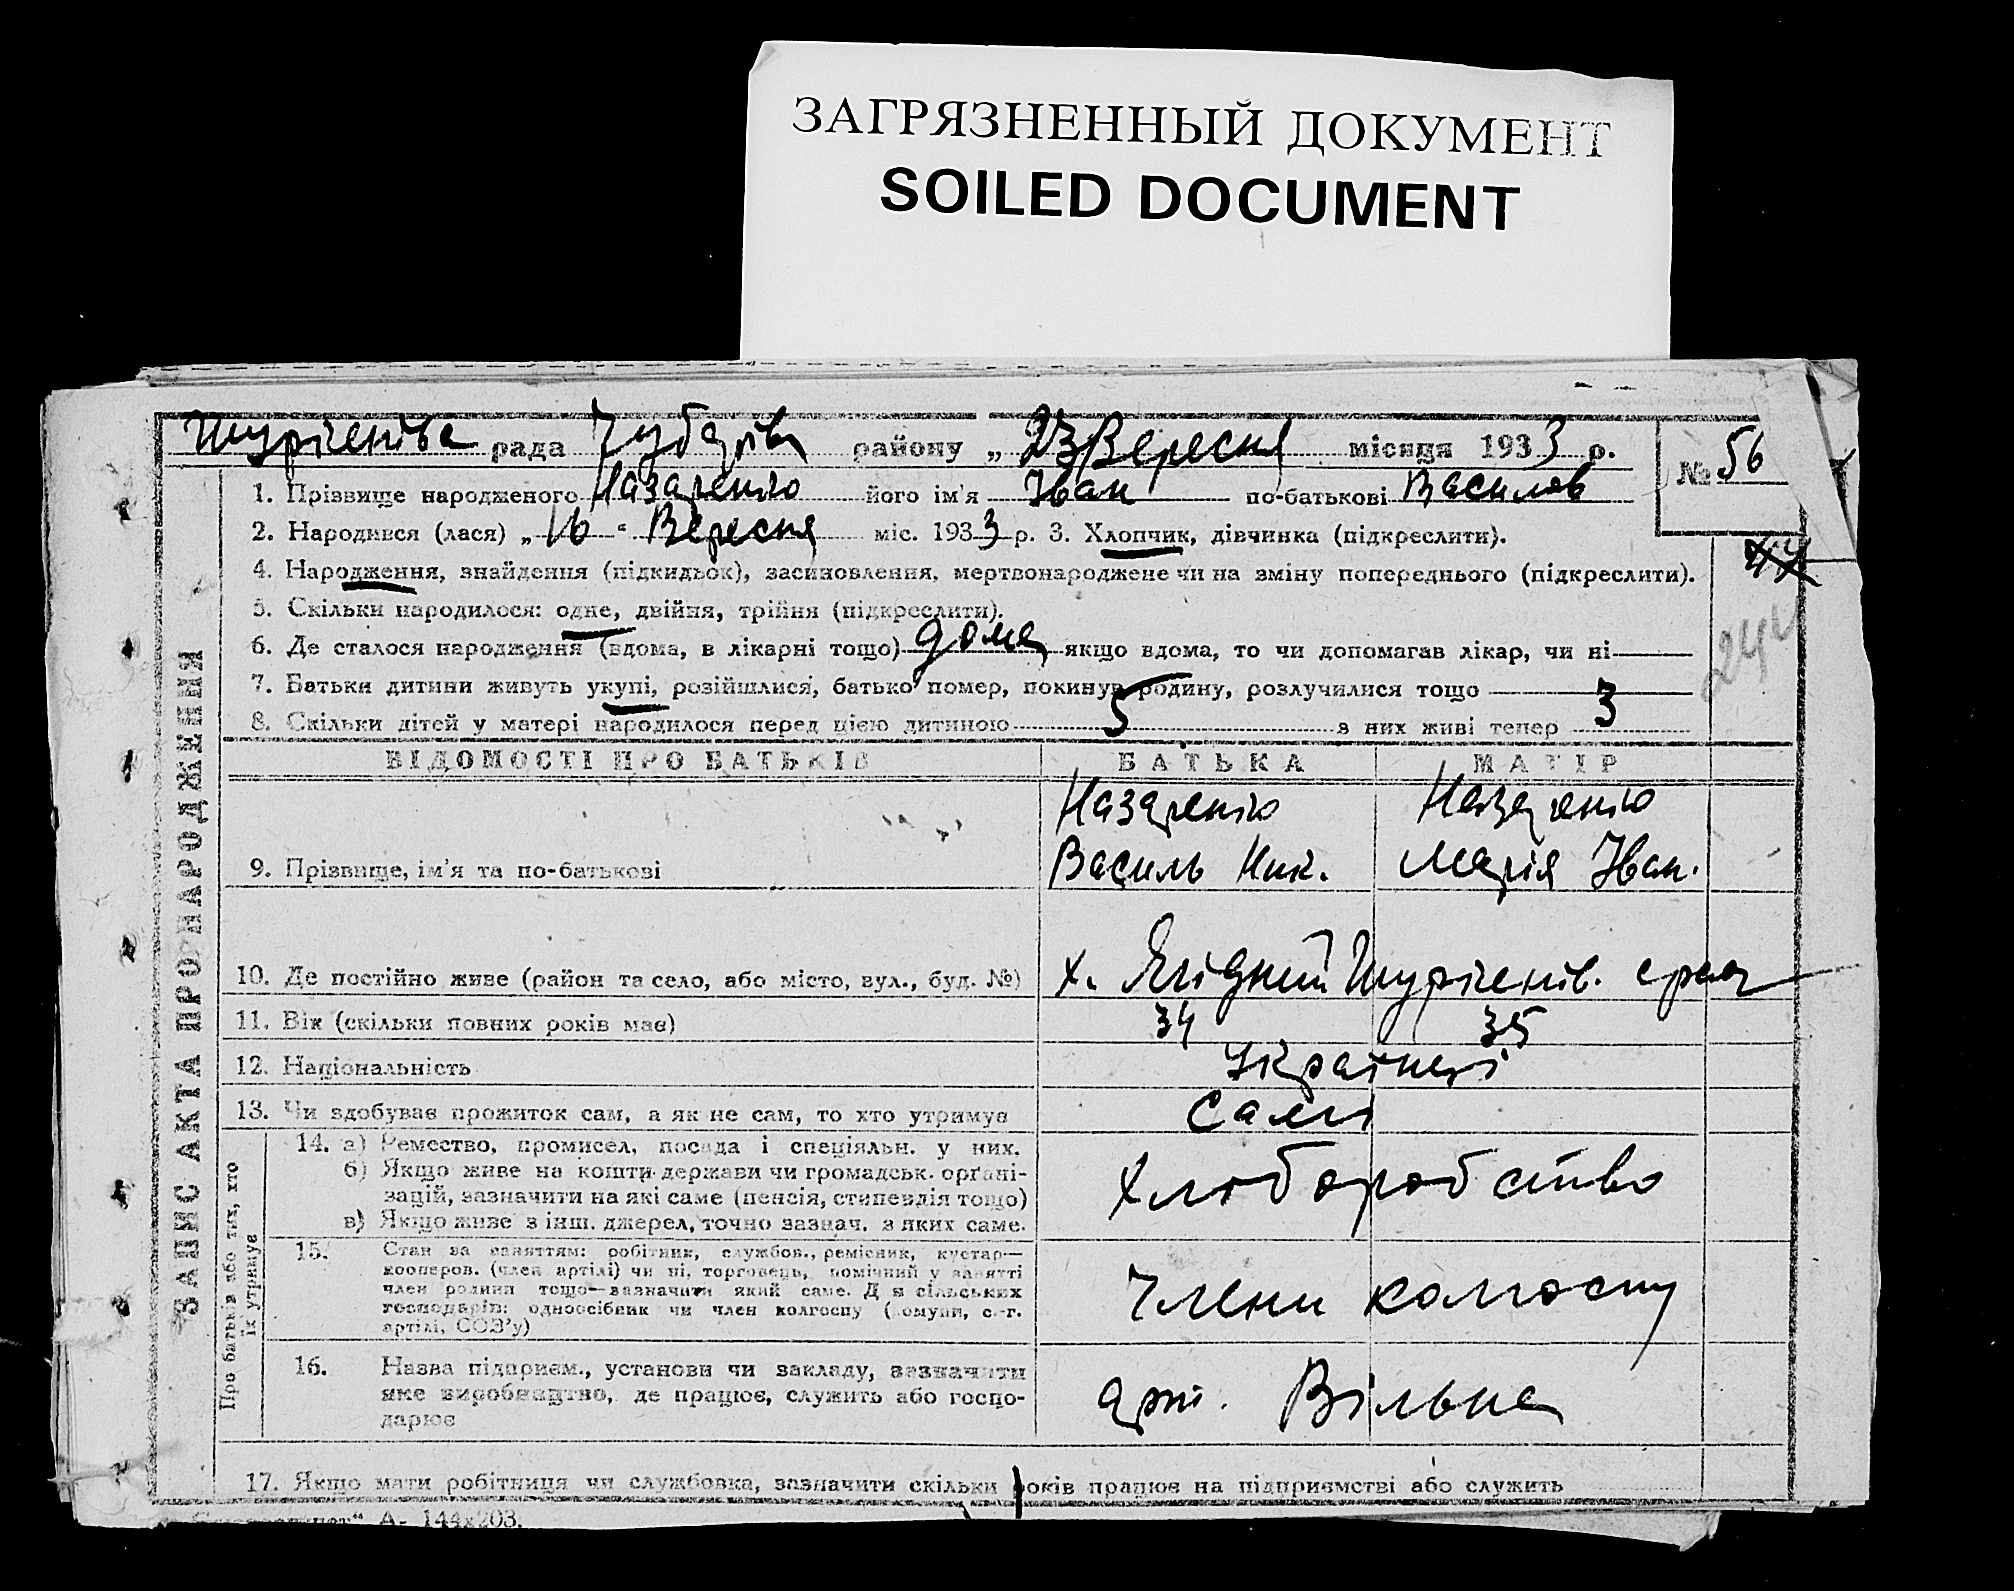 ЗАГРЯЗНЕННЫЙ ДОКУМЕНТ
SOILED DOCUMENT
рада району „ 23 Вересня місяця 1933 р.
№ 56
1. Прізвище народженого Назаренко його ім'я Іван по-батькові Василів
2. Народився (лася) „16" Вересня міс. 1933 р. 3. Хлопчик, дівчинка (підкреслити).
4. Народження, знайдення (підкидьок), засиновлення, мертвонароджене чи на зміну попереднього (підкреслити).
44
244
5. Скільки народилося: одне, двійня, трійня (підкреслити).
6. Де сталося народження (вдома, в лікарні тощо) дома якщо вдома, то чи допомагав лікар, чи ні
7. Батьки дитини живуть укупі, розійшлися, батько помер, покинув родину, розлучилися тощо
8. Скільки дітей у матері народилося перед цією дитиною 5 з них живі тепер 3
ВІДОМОСТІ ПРО БАТЬКІВ БАТЬКА МАТІР
Назаренко Назаренко
9. Прізвище, ім'я та по-батькові Василь Ник. Марія Іван.
10. Де постійно живе (район та село, або місто, вул., буд. №) х.
11. Вік (скільки повних років має) 34 35
12. Національність Українці
13. Чи здобуває прожиток сам, а як не сам, то хто утримує Самі
14. а) Ремество, промисел, посада і спеціяльн. у них.
б) Якщо живе на кошти держави чи громадськ. орґані-
зацій, зазначити на які саме (пенсія, стипендія тощо)
в) Якщо живе з інш. джерел, точно зазнач. з яких саме.
Хліборобство
15. Стан за заняттям: робітник, службов., ремісник, кустар—
кооперов. (член артілі) чи ні, торговець, помічний у занятті
член родини тощо—зазначити який саме. Для сільських
господарів: одноосібник чи член колгоспу (комуни, с.-г.
артілі, СОЗ'у)
Члени колгоспу
16. Назва підприєм., установи чи закладу, зазначити
яке виробництво, де працює, служить або госпо-
дарює
арт. Вільна
17. Якщо мати робітниця чи службовка, зазначити скільки років працює на підприємстві або служить
А- 144x203.
ЗАПИС АКТА ПРО НАРОДЖЕННЯ
Про батьків або тих, хто
їх утримує